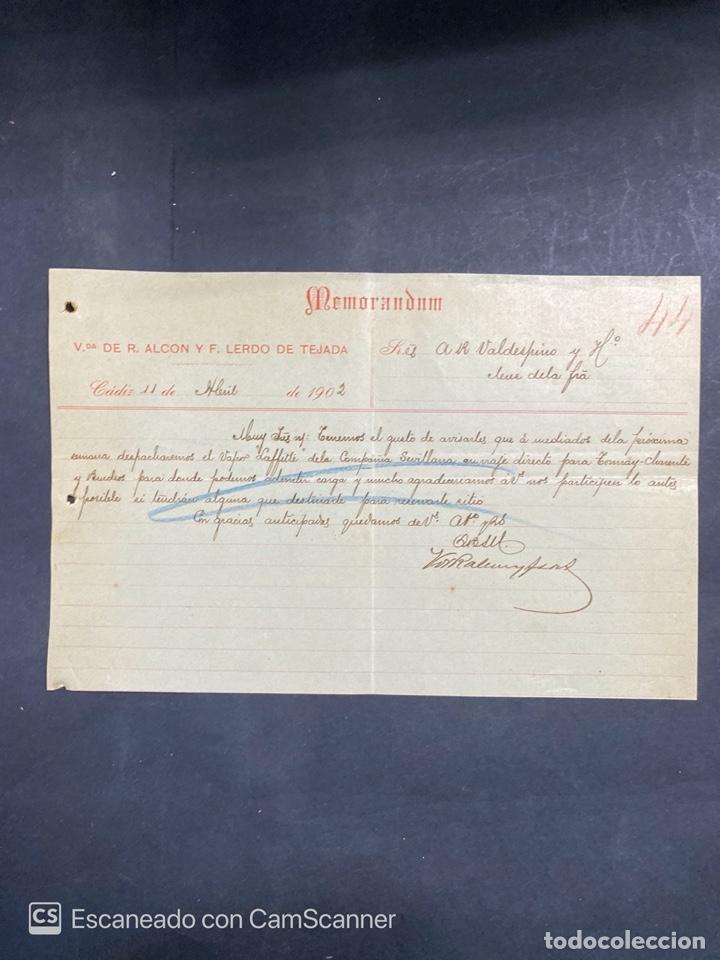 Memorandum
44
V.DA DE R. ALCON Y F. LERDO DE TEJADA
Sres A R Valdespino y H.º
Jerez de la Fra
Cádiz 11 de Abril de 1902
Muy Srs ns: Tenemos el gusto de avisarles que á mediados de la próxima
semana despacharemos el Vapor "Laffitte" de la Compañia Sevillana en viaje directo para Tonnay-Charente
y Burdeos para donde podemos admitir carga y mucho agradeceriamos á Vs nos participen lo antes
posible si tendrán alguna que destinarle para reservarle sitio
Con gracias anticipadas quedamos de Vs. At.os
QBSM.
CS Escaneado con CamScanner
todocoleccion